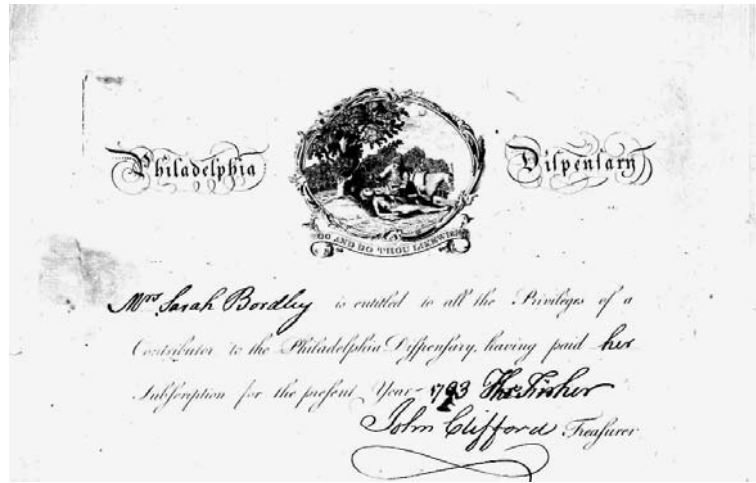 Philadelphia Dispensary
GO AND DO THOU LIKEWISE
Mrs Sarah Bordley is entitled to all the Privileges of a
Contributor to the Philadelphia Dispensary, having paid her
Subscription for the present Year 1793 Thos Fisher
John Clifford Treasurer